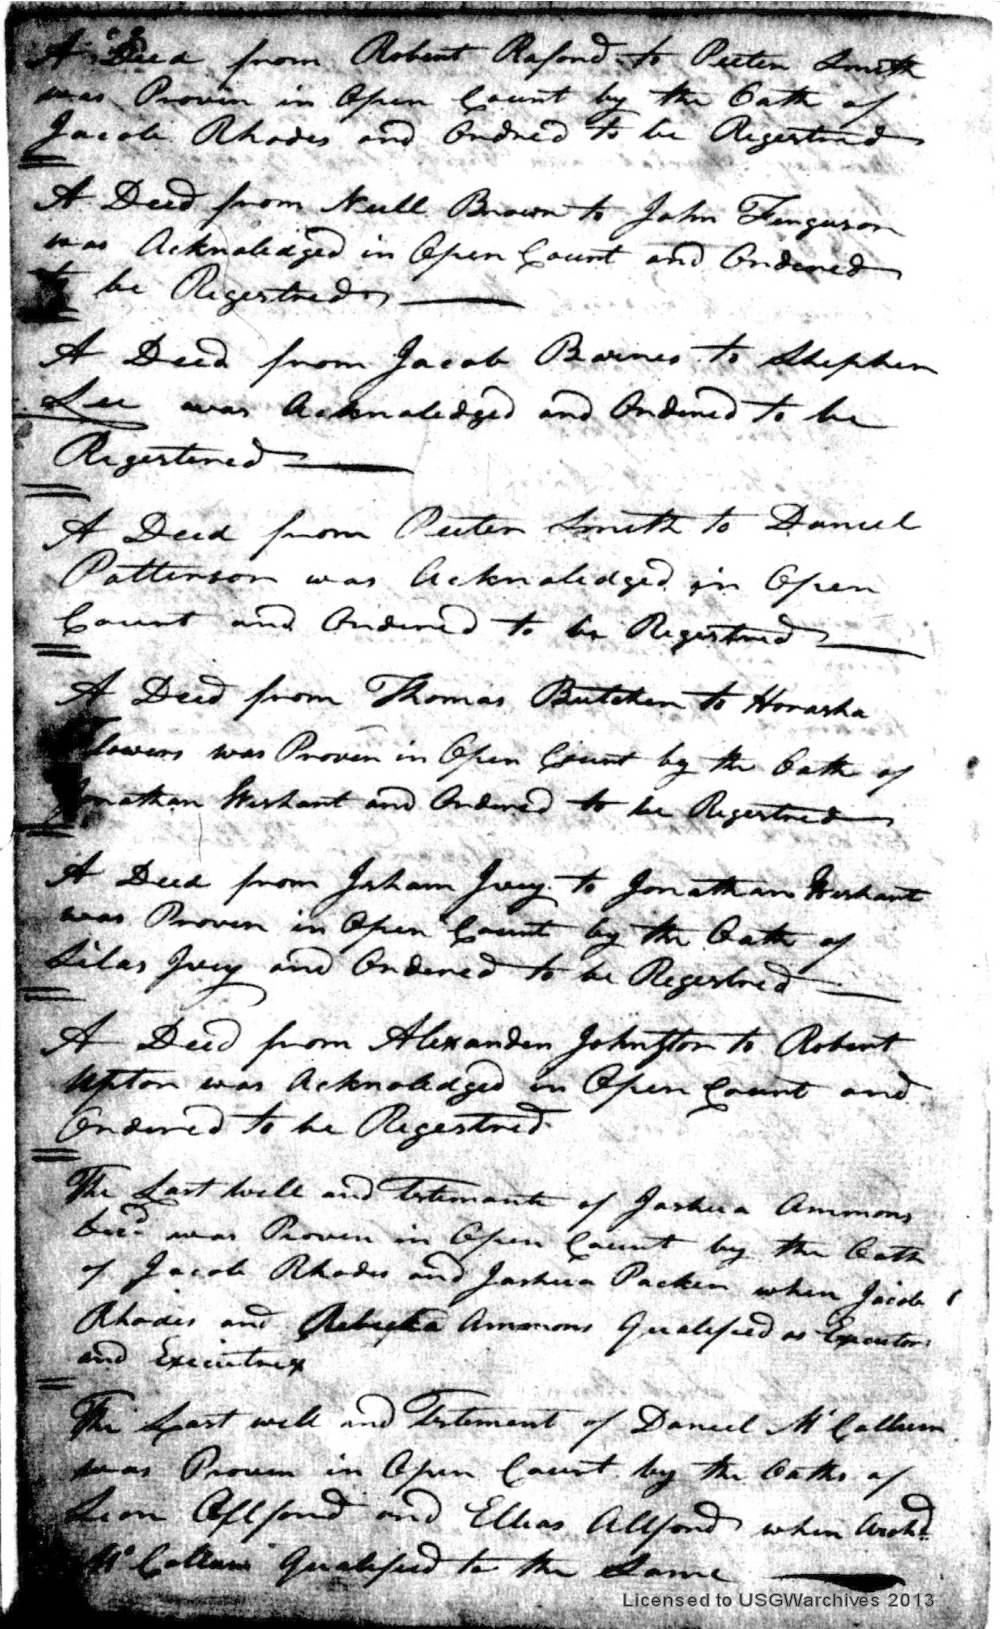 A Deed from Robert Raford to Peeter Smith
was Proven in Open Court by the Oath of
Jacob Rhodes and Ordred to be Regestred
A Deed from Neill Brown to John Ferguson
was Acknolidged in Open Court and Ordered
to be Regestred
A Deed from Jacob Barnes to Stephen
Lee was Acknoledged and Ordered to be
Regestered
A Deed from Peeter Smith to Daniel
Patterson was Acknoledged in Open
Court and Ordered to be Regestred
A Deed from Thomas Butcher to Horasha
Flowers was Proven in Open Court by the Oath of
Jonathan and Ordered to be Regestred
A Deed from Isham Ivey to Jonathan
was Proven in Open Court by the Oath of
Silas Ivey and Ordered to be Regestred
A Deed from Alexander Johnston to Robert
Upton was Acknoledged in Open Court and
Ordered to be Regestred
The Last will and Testimante of Joshua Ammons
Decd was Proven in Open Court by the Oath
of Jacob Rhodes and Joshua Packer when Jacob
Rhodes and Ammons Qualified as Executor
and Executrex
The Last will and Testement of Daniel McCallum
was Proven in Open Court by the Oaths of
Sion Allford and Ellias Allford when Archd
McCallum Qualified to the Same
Licensed to USGWarchives 2013